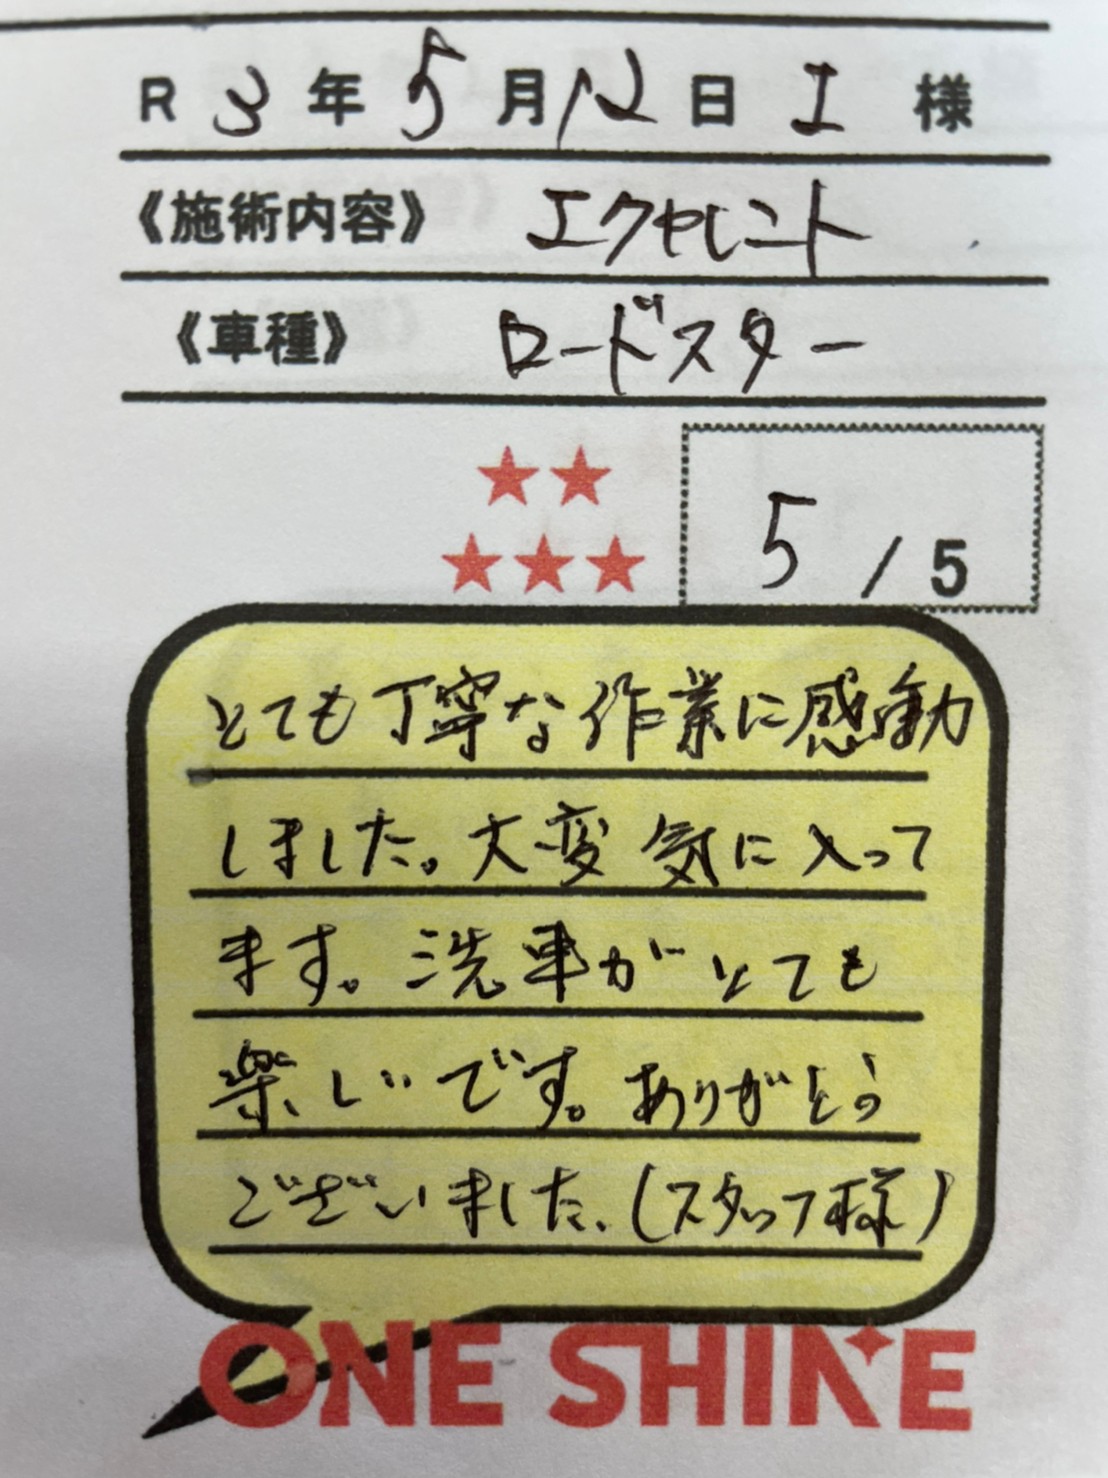 R 3 年 5 月 12 日 I 様
《施術内容》 エクセレント
《車種》 ロードスター
★★
★★★
5 / 5
とても丁寧な作業に感動
しました。大変気に入って
ます。洗車がとても
楽しいです。ありがとう
ございました。(スタッフ様)
ONE SHINE